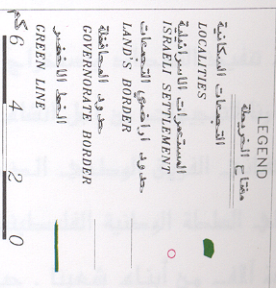 LEGEND
مفتاح الخريطة
التجمعات السكانية
LOCALITIES
المستعمرات الاسرائيلية
ISRAELI SETTLEMENT
حدود اراضي التجمعات
LAND'S BORDER
حدود المحافظة
GOVERNORATE BORDER
الخط الاخضر
GREEN LINE
كم 6 4 2 0